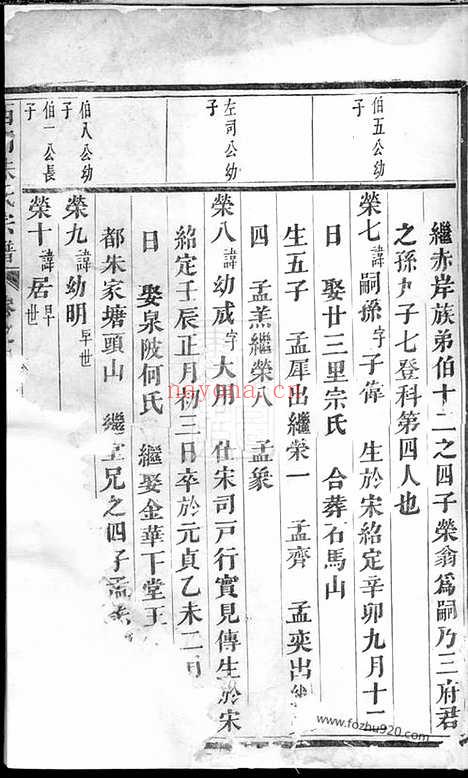 繼赤岸族弟伯十二之四子榮翁爲嗣乃三府君
之孫夕子七登科第四人也
伯五公幼子
榮七諱嗣孫字子偉 生於宋紹定辛卯九月十二
日 娶廿三里宗氏 合葬石馬山
生五子 孟犀出繼榮一 孟齊 孟奕出繼
四 孟羔繼榮八 孟象
左司公幼子
榮八諱幼成字大用 仕宋司戸行實見傳生於宋
紹定壬辰正月初三日卒於元貞乙未二月
日 娶泉陂何氏 繼娶金華下堂王
都朱家塘頭山 繼 兄之四子孟
伯八公幼子
榮九諱幼明早世
伯一公長子
榮十諱居早世
氏宗譜
nayona.cn
www.fozhu920.com